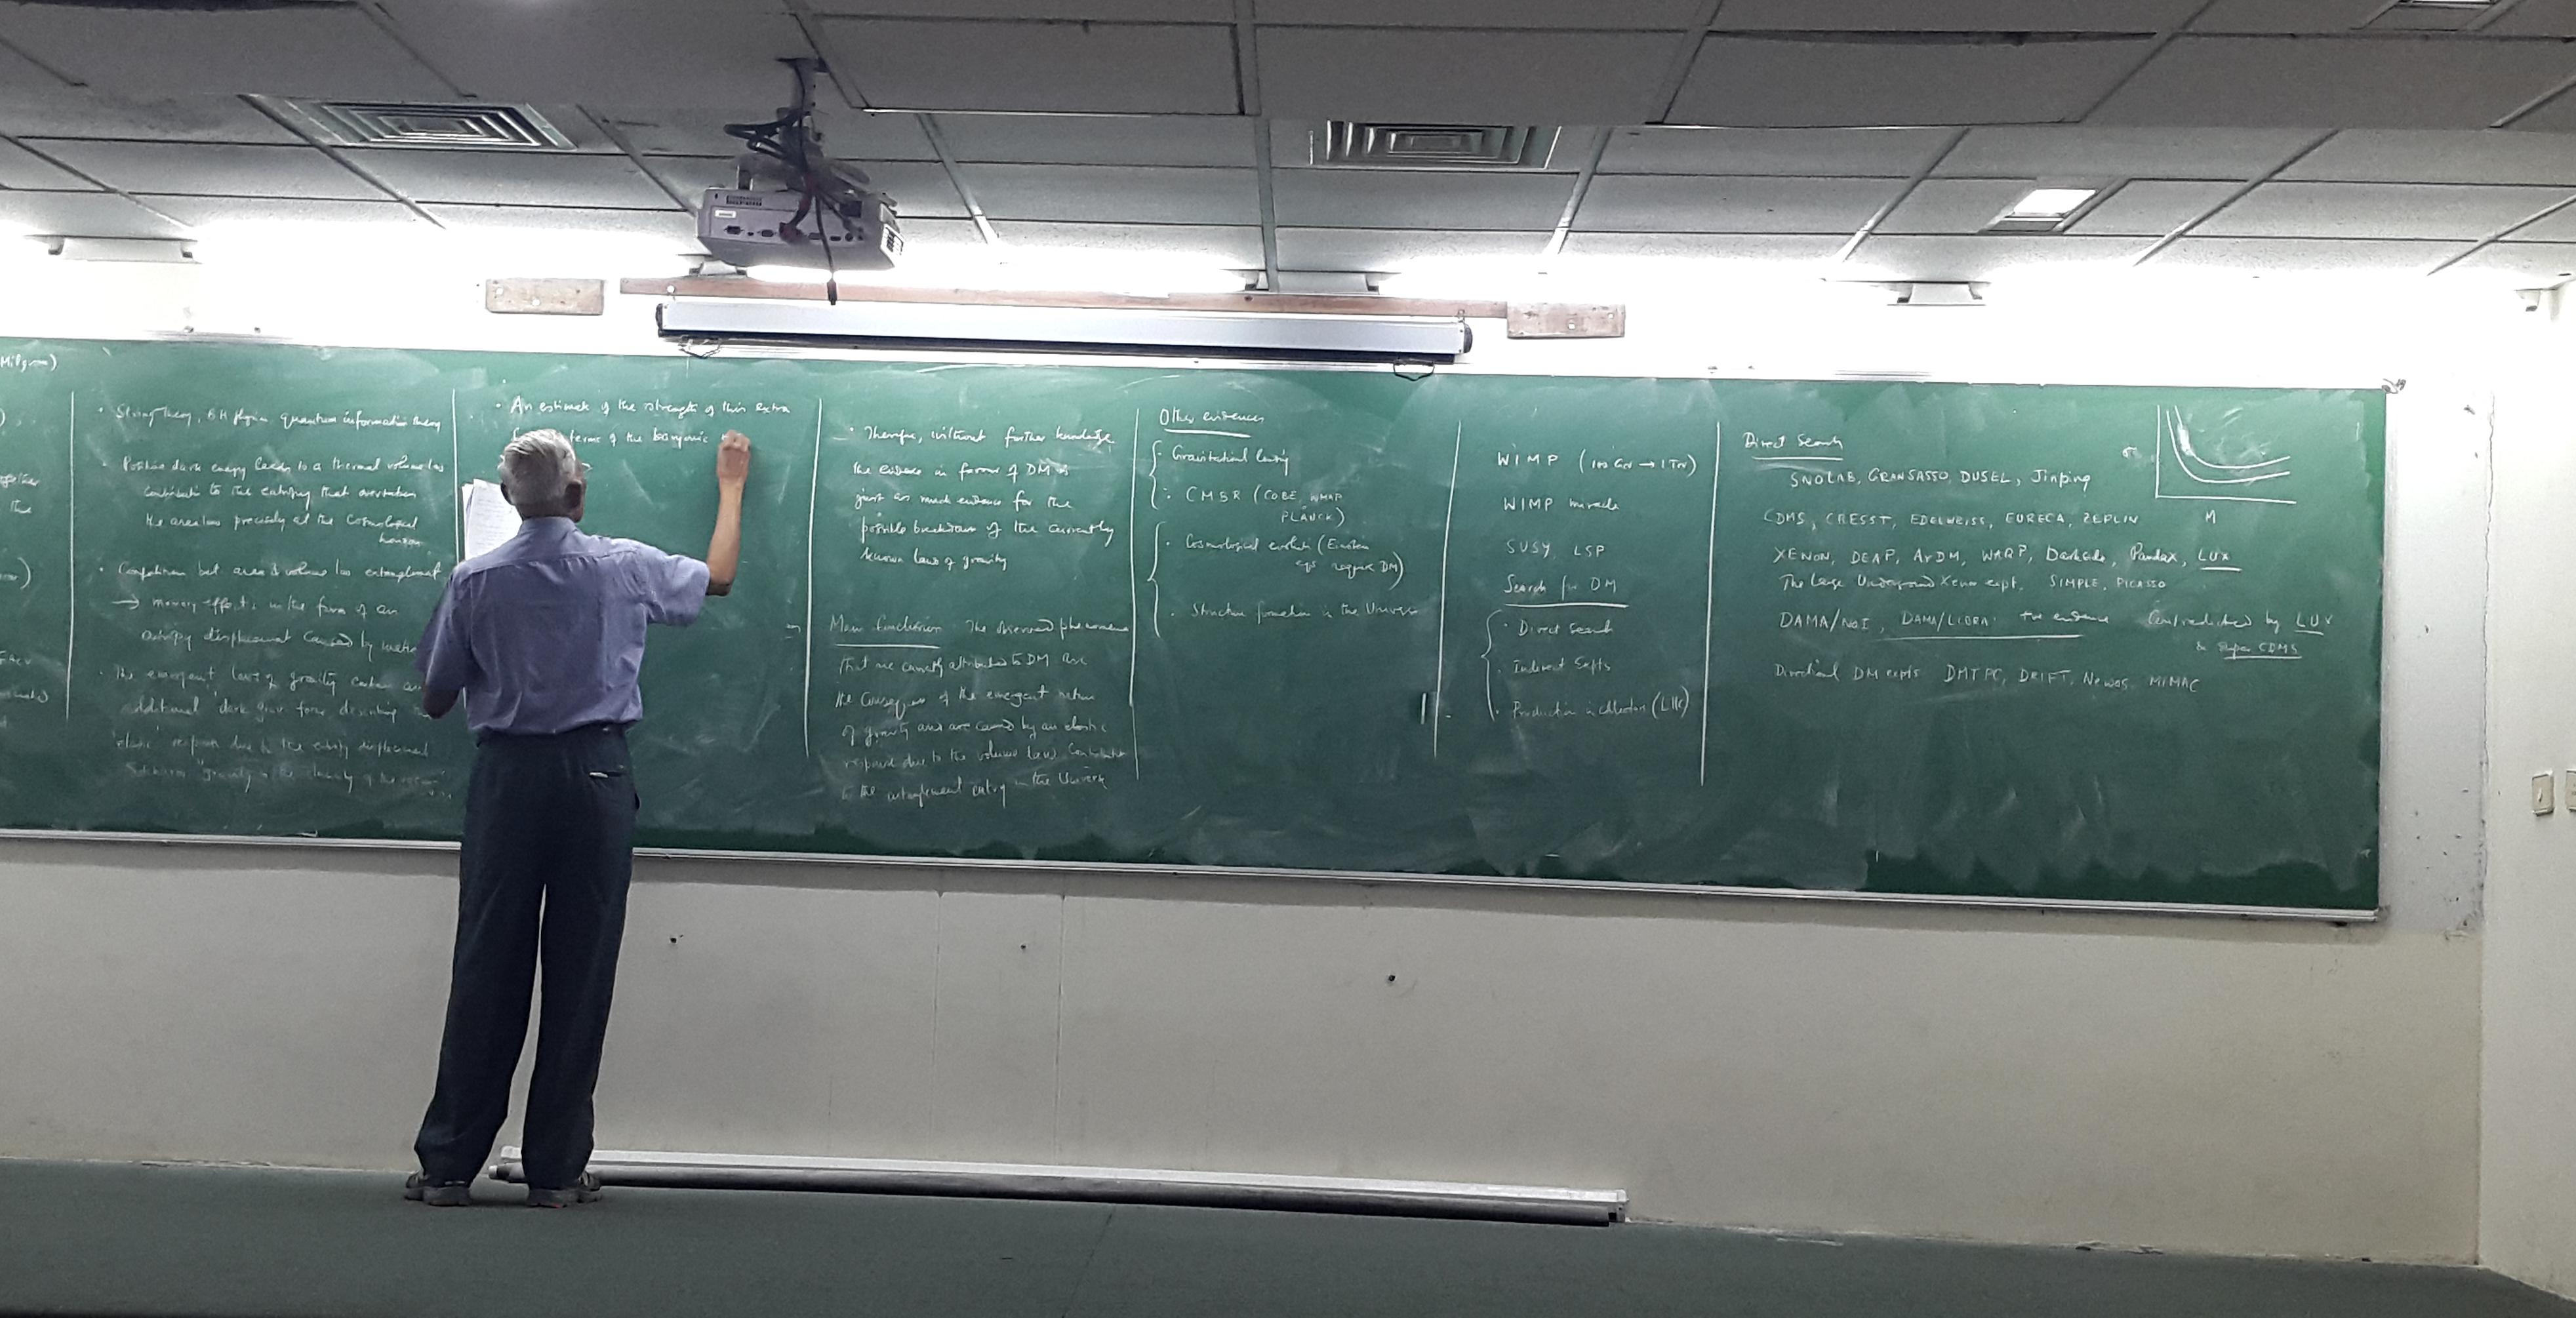 Milgrom)
the
• String theory, BH physics quantum information theory
• Positive dark energy leads to a thermal volume law
contribution to the entropy that overtakes
the area law precisely at the cosmological
horizon
• Competition bet area & volume law entanglement
→ memory effects in the form of an
entropy displacement caused by matter
• The emergent laws of gravity contain an
additional "dark grav force describing
'elastic' response due to the entropy displacement
• An estimate of the strength of this extra
terms of the baryonic
• Therefore, without further knowledge
the evidence in favour of DM is
just as much evidence for the
possible breakdown of the currently
known laws of gravity
Main Conclusion The observed phenomena
that are currently attributed to DM are
the consequence of the emergent nature
of gravity and are caused by an elastic
response due to the volume law contribution
to the entanglement entropy in the Universe
Other evidences
• Gravitational lensing
• CMBR (COBE, WMAP
PLANCK)
• Cosmological evolution (Einstein
eqs require DM)
• Structure formation in the Universe
WIMP (100 GeV → 1 TeV)
WIMP miracle
SUSY, LSP
Search for DM
• Direct Search
• Indirect Expts
• Production in colliders (LHC)
Direct Search
σ
M
SNOLAB, GRANSASSO, DUSEL, Jinping
CDMS, CRESST, EDELWEISS, EURECA, ZEPLIN
XENON, DEAP, ArDM, WARP, Darkside, Pandax, LUX
The Large Underground Xenon expt, SIMPLE, PICASSO
DAMA/NaI, DAMA/LIBRA: +ve evidence Contradicted by LUX
& Super CDMS
Directional DM expts DMTPC, DRIFT, Newage MIMAC